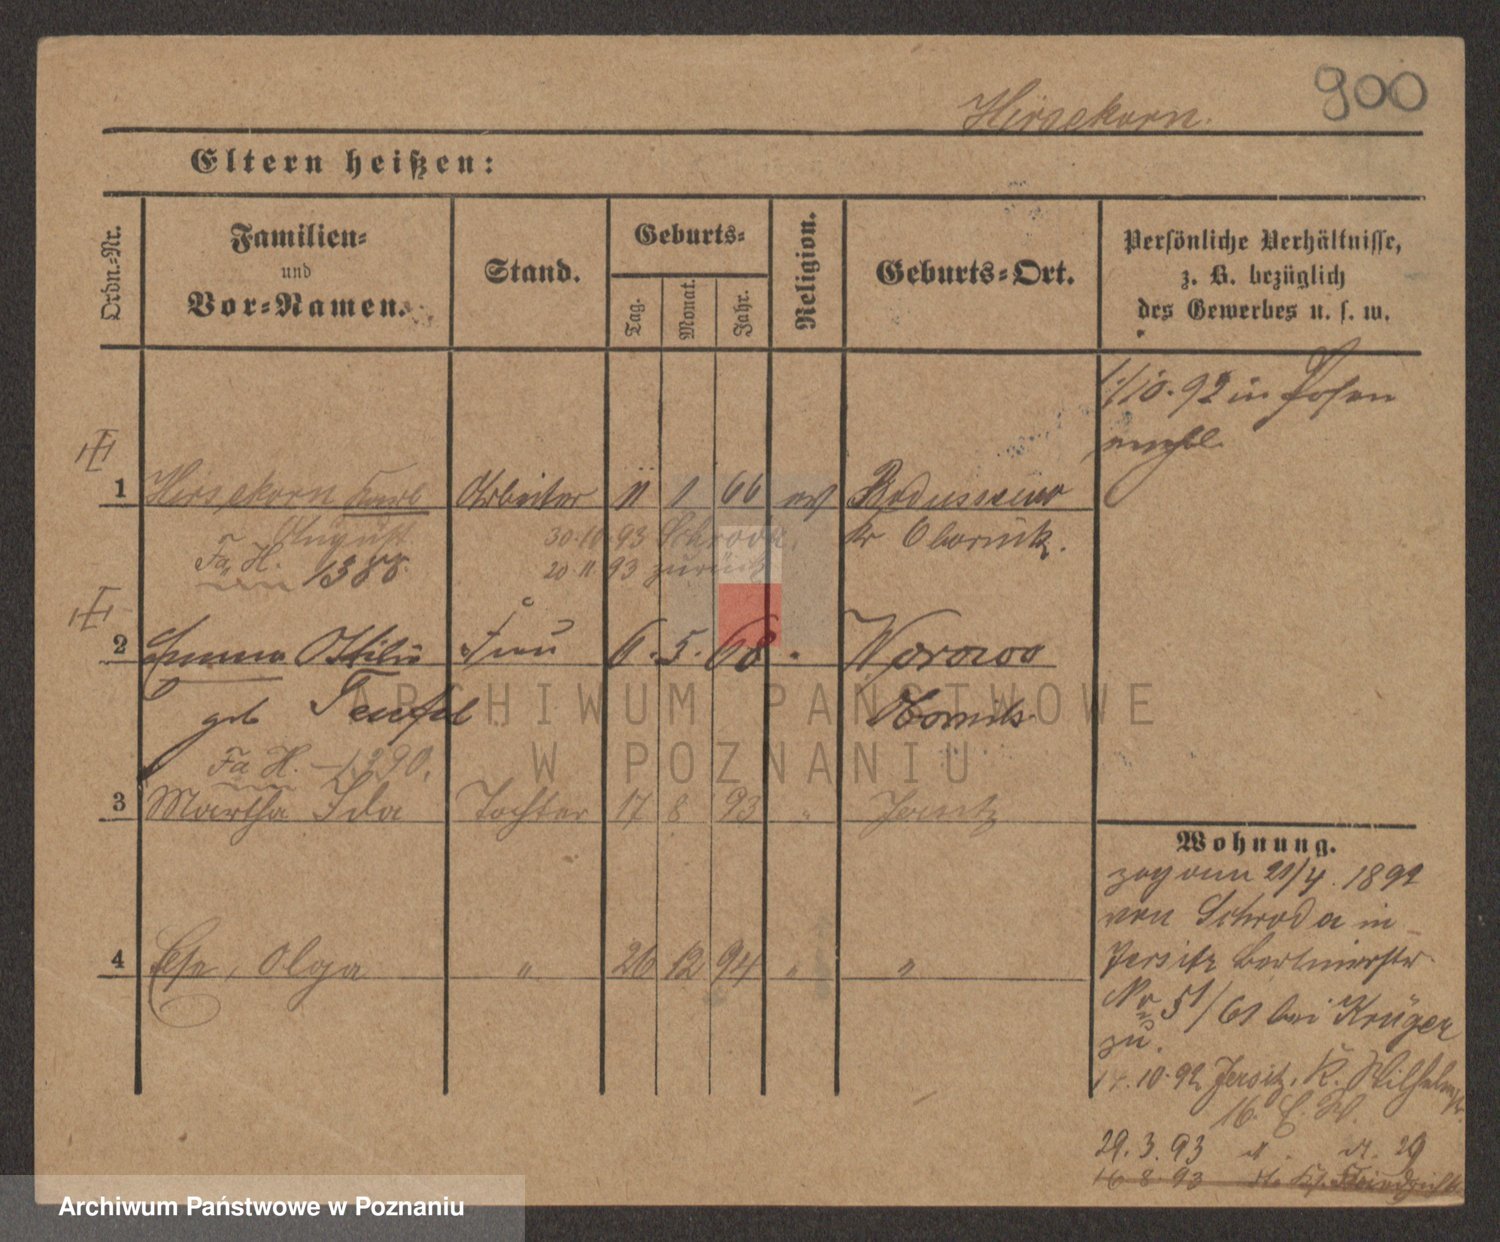 900
Hirsekorn.
Eltern heißen:
Ordn.-Nr.
Familien-
und
Vor-Namen.
Stand.
Geburts-
Tag.
Monat.
Jahr.
Religion.
Geburts-Ort.
Persönliche Verhältnisse,
z. B. bezüglich
des Gewerbes u. s. w.
1/10. 92 in Posen
1 Hirsekorn Karl Arbeiter 11 1 66 ev
August 30.10.93 Schroda, Kr Obornik.
Fa. H. 1388. 20.11.93 zurück
2 Emma Ottilie Frau 6. 5. 68 "
geb Teufel Obornik
Fa H. 1390.
3 Martha Ida Tochter 17 8 93 " Jersitz
4 Else, Olga " 26 12 94 " "
Wohnung.
zog am 21/4. 1892
von Schroda in
Jersitz Berlinerstr
No 51/61 bei Krüger
zu.
10.92 Jersitz, K. Wilhelmstr.
16. E. W.
29.3.93 29
16 8. 93
ARCHIWUM PAŃSTWOWE
W POZNANIU
Archiwum Państwowe w Poznaniu